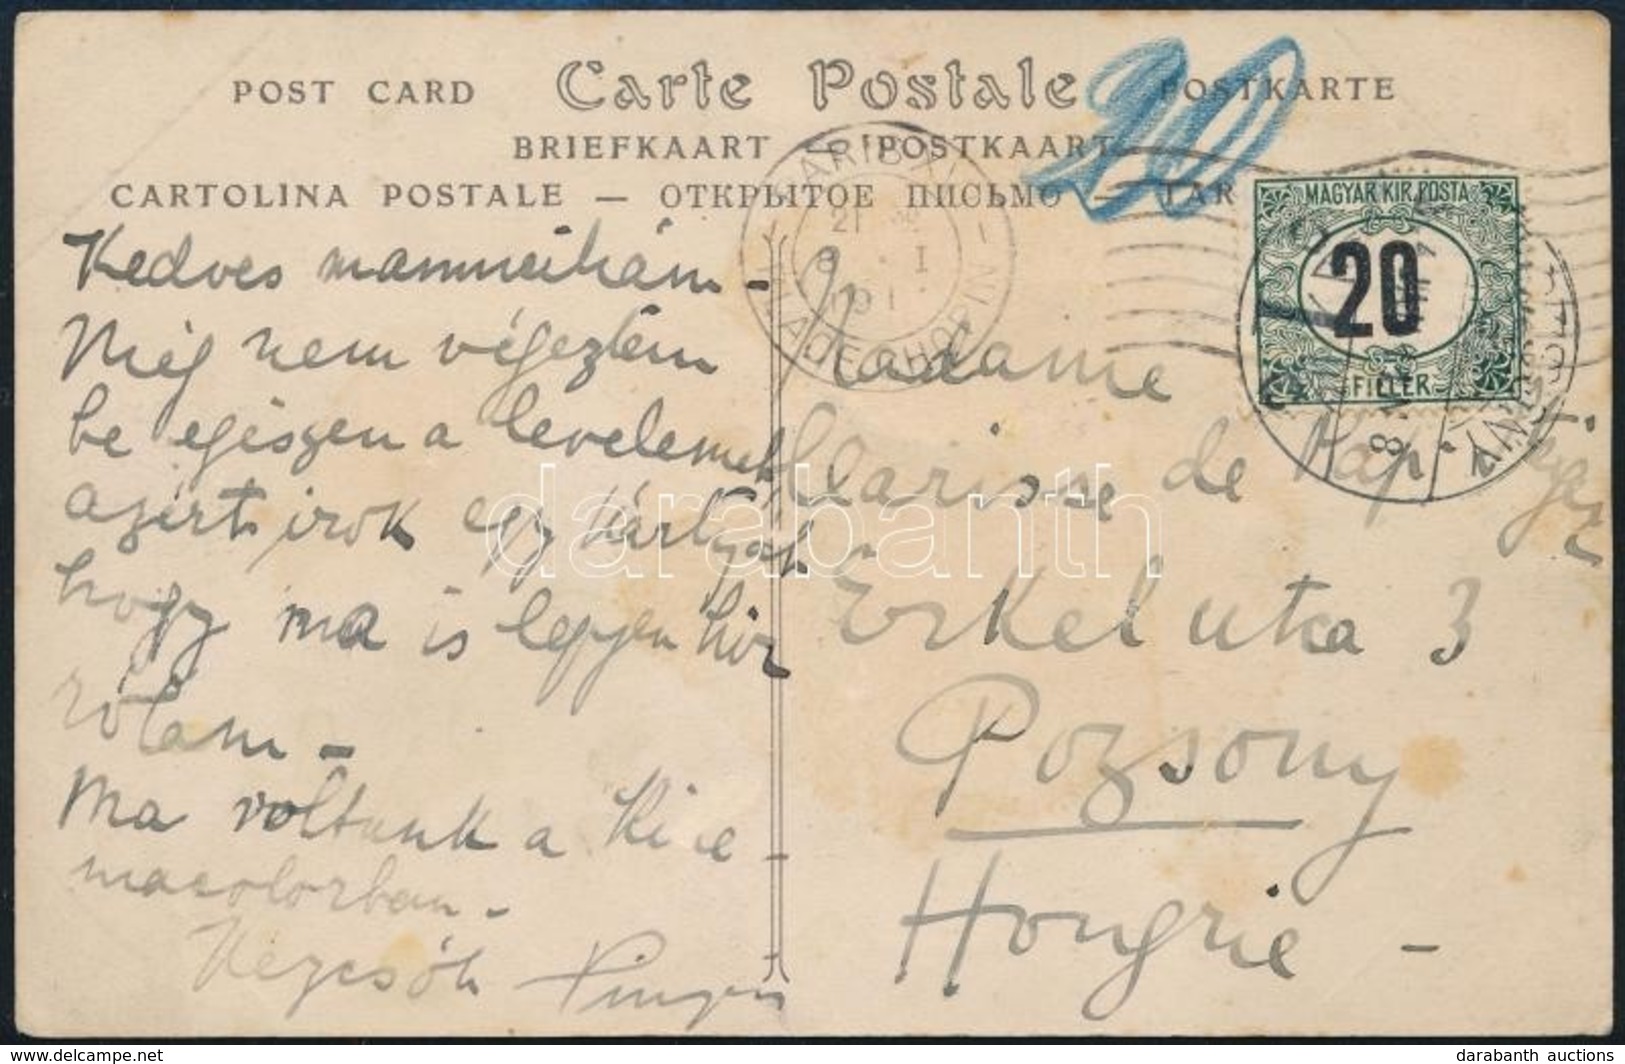 POST CARD Carte Postale POSTKARTE
20
BRIEFKAART — POSTKAART
CARTOLINA POSTALE — ОТКРЫТОЕ ПИСЬМО — TAR
MAGYAR KIR. POSTA
20
FILLÉR
Kedves mammcikám –
Még nem végeztem
be egészen a levelemet
azért irok egy kártyát
hogy ma is legyen hir
rólam –
Ma voltunk a
Kézcsók
Madame
Clarisse de
Erkel utca 3
Pozsony
Hongrie –
darabanth
delcampe.net
darabanth auctions